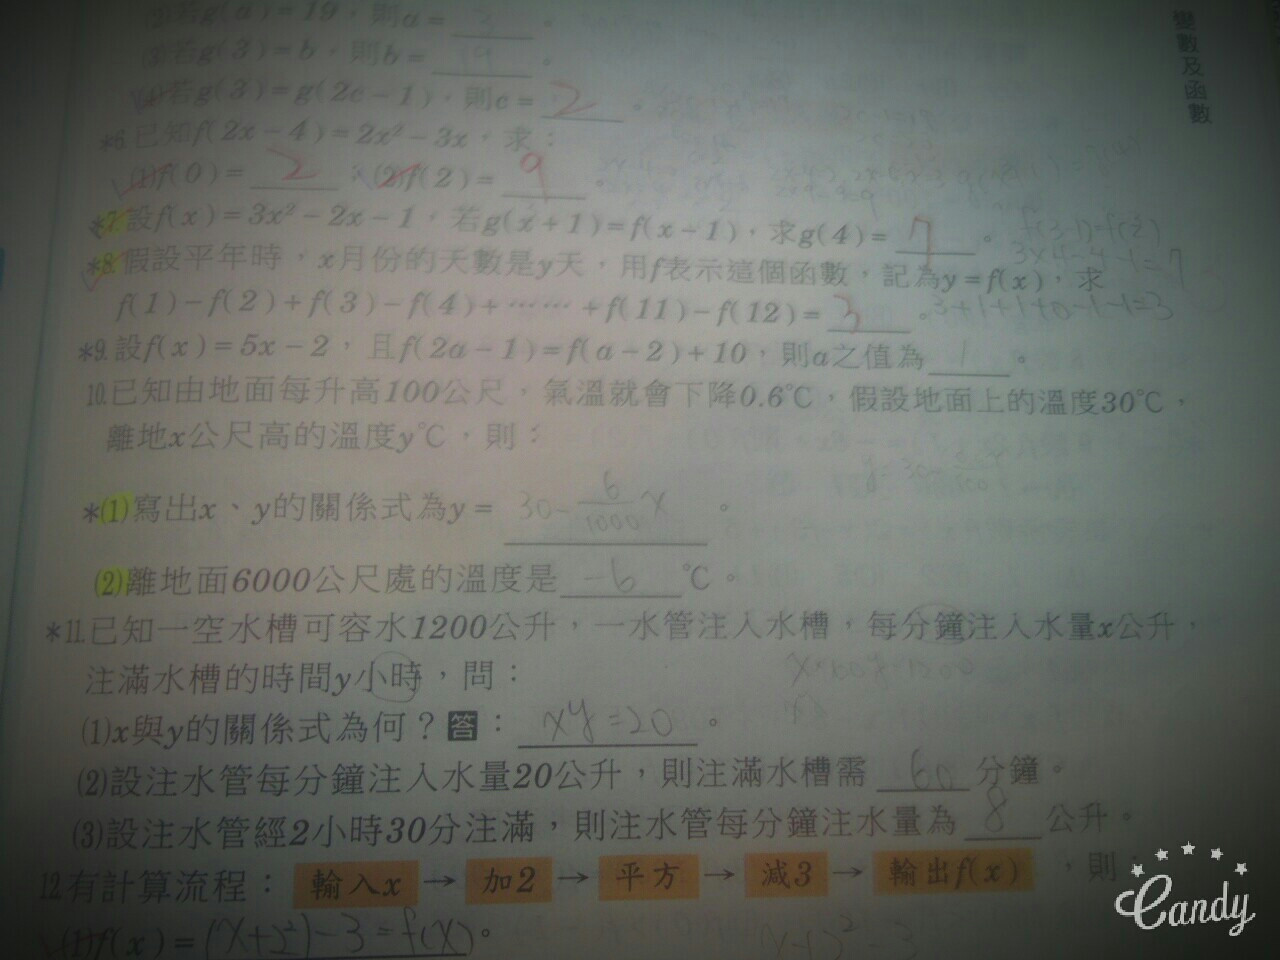 (2)若g(a)=19,則a= 3 。
(3)若g(3)=b,則b= 19 。
(4)若g(3)=g(2c-1),則c= 2 。
*6.已知f(2x-4)=2x²-3x,求:
(1)f(0)= 2 (2)f(2)= 9 。
*7.設f(x)=3x²-2x-1,若g(x+1)=f(x-1),求g(4)= 7 。 f(3-1)=f(2)
3×4-4-1=7
*8.假設平年時,x月份的天數是y天,用f表示這個函數,記為y=f(x),求
f(1)-f(2)+f(3)-f(4)+……+f(11)-f(12)= 3 。 3+1+1+0-1-1=3
*9.設f(x)=5x-2,且f(2a-1)=f(a-2)+10,則a之值為 1 。
10.已知由地面每升高100公尺,氣溫就會下降0.6℃,假設地面上的溫度30℃,
離地x公尺高的溫度y℃,則:
*(1)寫出x、y的關係式為y= 30-6/1000 x 。
(2)離地面6000公尺處的溫度是 -6 ℃。
*11.已知一空水槽可容水1200公升,一水管注入水槽,每分鐘注入水量x公升,
注滿水槽的時間y小時,問:
(1)x與y的關係式為何?答: xy=20 。
(2)設注水管每分鐘注入水量20公升,則注滿水槽需 60 分鐘。
(3)設注水管經2小時30分注滿,則注水管每分鐘注水量為 8 公升。
12.有計算流程: 輸入x → 加2 → 平方 → 減3 → 輸出f(x) ,則
(1)f(x)= (x+2)²-3=f(x)。
變數及函數
Candy